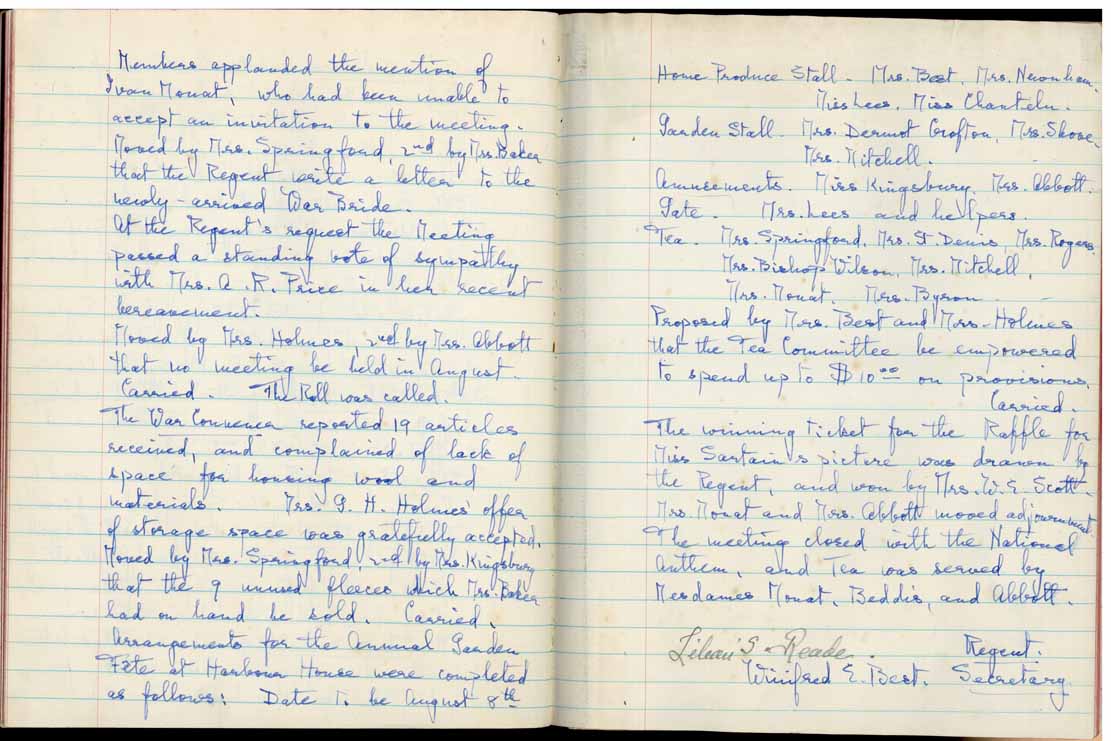 Members applauded the mention of
Ivan Mouat, who had been unable to
accept an invitation to the meeting.
Moved by Mrs. Springford, 2nd by Mrs. Baker
that the Regent write a letter to the
newly-arrived War Bride.
At the Regent's request the Meeting
passed a standing vote of sympathy
with Mrs. A. R. Price in her recent
bereavement.
Moved by Mrs. Holmes, 2nd by Mrs. Abbott
that no meeting be held in August.
Carried. The Roll was called.
The War Convener reported 19 articles
received, and complained of lack of
space for housing wool and
materials. Mrs. G. H. Holmes' offer
of storage space was gratefully accepted.
Moved by Mrs. Springford, 2nd by Mrs. Kingsbury
that the 9 unused fleeces which Mrs. Baker
had on hand be sold. Carried.
Arrangements for the Annual Garden
Fête at Harbour House were completed
as follows: Date to be August 8th
Home Produce Stall - Mrs. Best, Mrs. Newnham,
Miss Lees, Miss Chantelu.
Garden Stall. Mrs. Dermot Crofton, Mrs. Shove,
Mrs. Mitchell.
Amusements. Miss Kingsbury, Mrs. Abbott.
Gate. Mrs. Lees and helpers.
Tea. Mrs. Springford, Mrs. St. Denis, Mrs. Rogers,
Mrs. Bishop Wilson, Mrs. Mitchell,
Mrs. Mouat, Mrs. Byron.
Proposed by Mrs. Best and Mrs. Holmes
that the Tea Committee be empowered
to spend up to $10.00 on provisions.
Carried.
The winning Ticket for the Raffle for
Miss Sartain's picture was drawn by
the Regent, and won by Mrs. W. E. Scott.
Mrs. Mouat and Mrs. Abbott moved adjournment.
The meeting closed with the National
Anthem, and Tea was served by
Mesdames Mouat, Beddis, and Abbott.
S. Reade. Regent.
Winifred E. Best. Secretary.